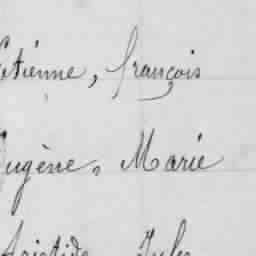 Etienne, françois
Eugène, Marie
Aristide Jules